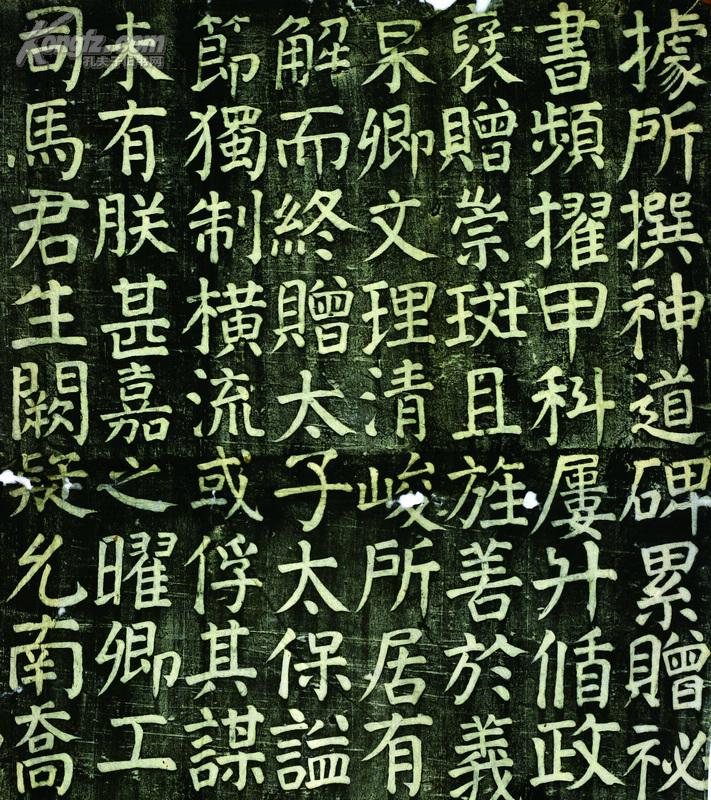 據所撰神道碑累贈祕
書頻擢甲科屢升偱政
裦贈崇班且旌善於義
杲卿文理清峻所居有
解而終贈太子太保謚
節獨制橫流或俘其謀
未有朕甚嘉之曜卿工
司馬君生闕疑允南喬
Kongfz.com
孔夫子旧书网